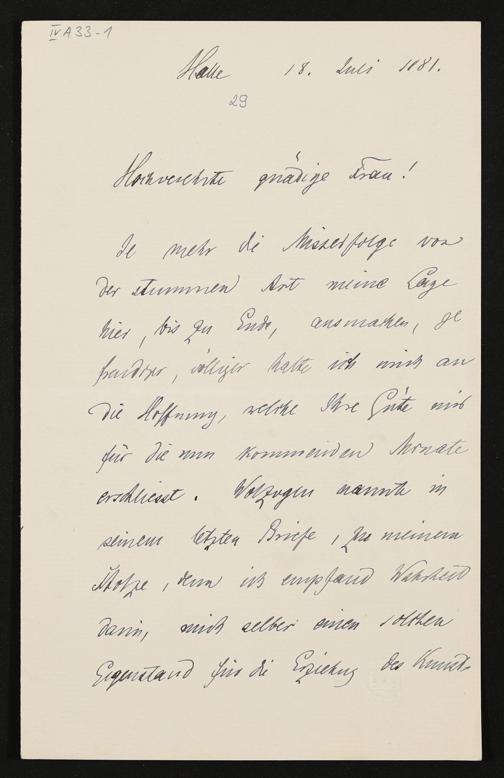 IV A 33-1
Halle 18. Juli 1881.
29
Hochverehrte gnädige Frau!
Je mehr die Misserfolge von
der stummen Art meine Lage
hier, bis zu Ende, ausmachen, je
freudiger, völliger halte ich mich an
die Hoffnung, welche Ihre Güte mir
für die nun kommenden Monate
erschliesst. Wolzogen nannte in
seinem letzten Briefe, zu meinem
Stolze, denn ich empfand Wahrheit
darin, mich selber einen solchen
Gegenstand für die Erziehung des Kunst-